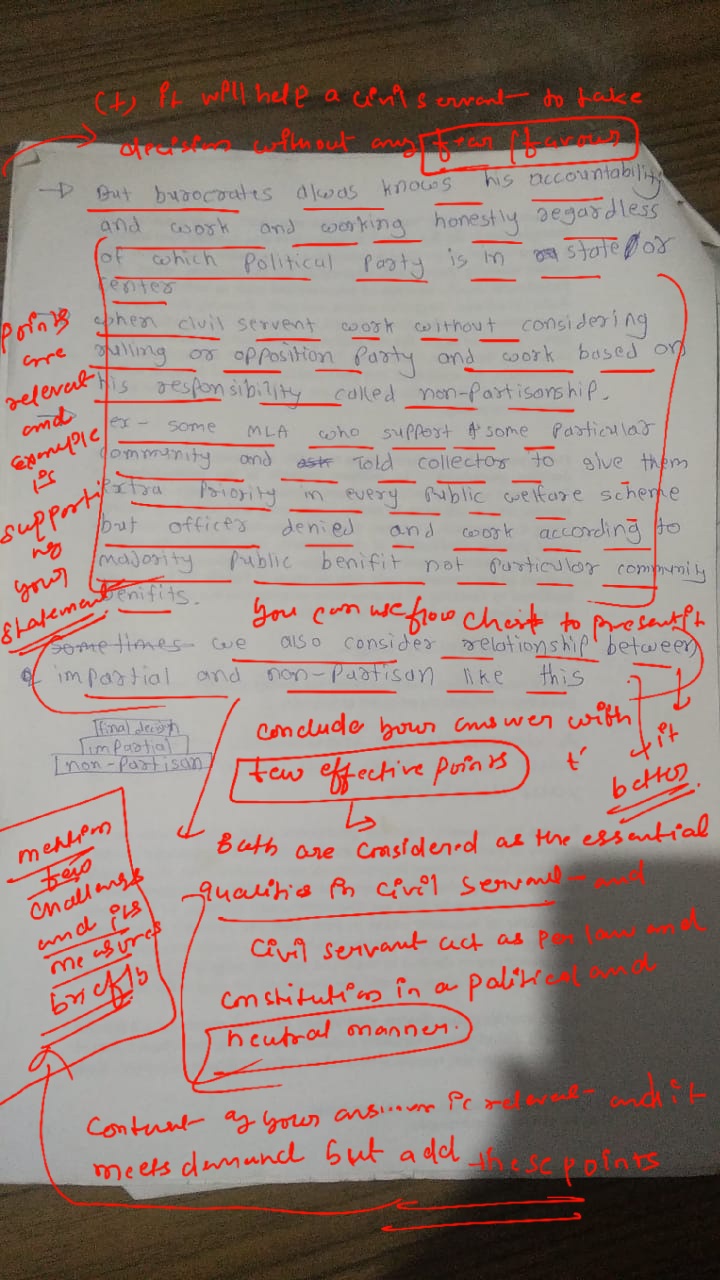 (+) It will help a civil servant to take
decision without any fear / favour
→ But burocrates alwas knows his accountability
and work and working honestly regardless
of which Political Party is in state or
center
when civil servent work without considering
rulling or opposition Party and work based on
his responsibility called non-Partisonship.
ex- some MLA who support some Particular
community and Told collector to give them
extra Priority in every Public welfare scheme
but officer denied and work according to
majority Public benifit not Particular community
benifits.
Points
are
relevant
and
example
is
supporti
ng
your
statement
You can use flow chart to present it
sometimes we also consider relationship between
impartial and non-Partisan like this
better
final decision
impartial
non-Partisan
conclude your answer with
few effective points
Both are considered as the essential
qualities in civil servant and
civil servant act as per law and
constitution in a political and
neutral manner.
mention
few
challenges
and its
measures
briefly
Content of your answer is relevant and it
meets demand but add these points